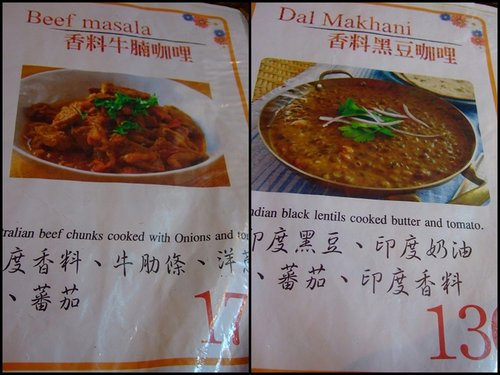 Beef masala
香料牛腩咖哩
beef chunks cooked with Onions and
度香料、牛肋條、洋
、蕃茄
Dal Makhani
香料黑豆咖哩
black lentils cooked butter and tomato.
印度黑豆、印度奶油
、蕃茄、印度香料